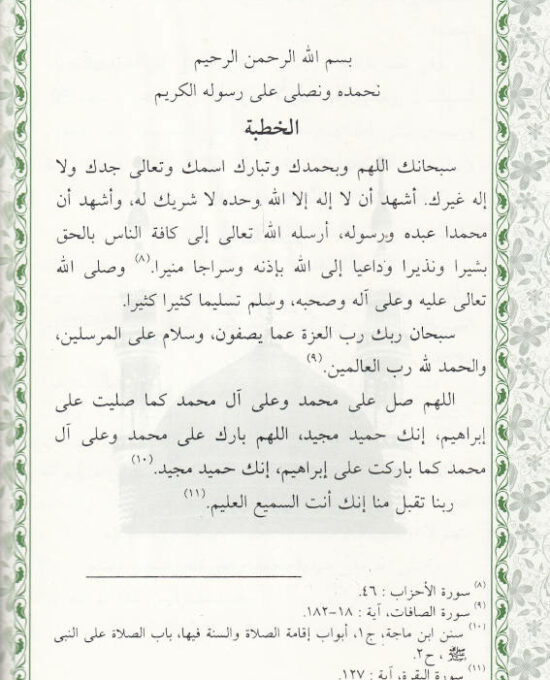 بسم الله الرحمن الرحيم
نحمده ونصلى على رسوله الكريم
الخطبة
سبحانك اللهم وبحمدك وتبارك اسمك وتعالى جدك ولا
إله غيرك. أشهد أن لا إله إلا الله وحده لا شريك له، وأشهد أن
محمدا عبده ورسوله، أرسله الله تعالى إلى كافة الناس بالحق
بشيرا ونذيرا وداعيا إلى الله بإذنه وسراجا منيرا.(٨) وصلى الله
تعالى عليه وعلى آله وصحبه، وسلم تسليما كثيرا كثيرا.
سبحان ربك رب العزة عما يصفون، وسلام على المرسلين،
والحمد لله رب العالمين.(٩)
اللهم صل على محمد وعلى آل محمد كما صليت على
إبراهيم، إنك حميد مجيد، اللهم بارك على محمد وعلى آل
محمد كما باركت على إبراهيم، إنك حميد مجيد.(١٠)
ربنا تقبل منا إنك أنت السميع العليم.(١١)
(٨) سورة الأحزاب : ٤٦.
(٩) سورة الصافات، آية : ١٨-١٨٢.
(١٠) سنن ابن ماجة، ج١، أبواب إقامة الصلاة والسنة فيها، باب الصلاة على النبى
ﷺ ، ح٢.
(١١) سورة البقرة، آية : ١٢٧.